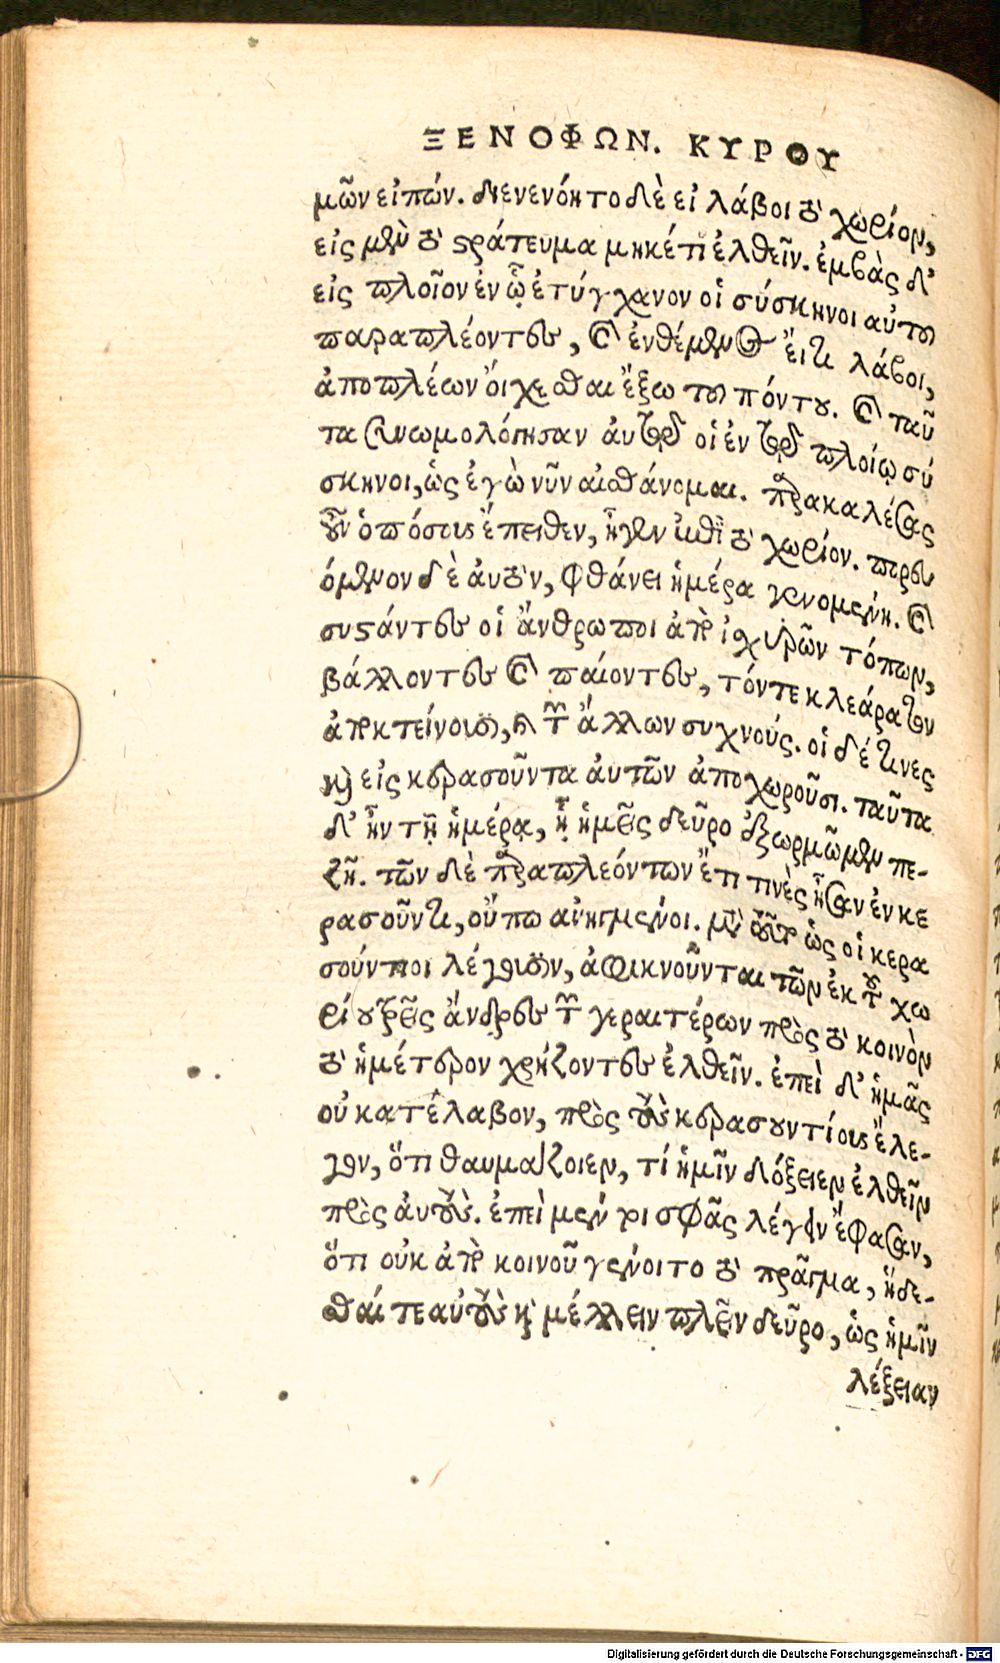 ΞΕΝΟΦΩΝ. ΚΥΡΟΥ
μῶν εἰπών. διενενόητο δὲ εἰ λάβοι τὸ χωρίον,
εἰς μὲν τὸ στράτευμα μηκέτι ἐλθεῖν. ἐμβὰς δ'
εἰς πλοῖον ἐν ᾧ ἐτύγχανον οἱ σύσκηνοι αὐτοῦ
παραπλέοντες, καὶ ἐνθέμενος εἴ τι λάβοι,
ἀποπλέων οἴχεσθαι ἔξω τοῦ πόντου. καὶ ταῦ
τα συνωμολόγησαν αὐτῷ οἱ ἐν τῷ πλοίῳ σύ
σκηνοι, ὡς ἐγὼ νῦν αἰσθάνομαι. παρακαλέσας
οὖν ὁπόσους ἔπειθεν, ἦγεν ἐπὶ τὸ χωρίον. πορευ
όμενον δὲ αὐτὸν, φθάνει ἡμέρα γενομένη. καὶ
συστάντες οἱ ἄνθρωποι ἀπὸ ἰσχυρῶν τόπων,
βάλλοντες καὶ παίοντες, τόν τε κλεάρατον
ἀποκτείνουσι, καὶ τῶν ἄλλων συχνούς. οἱ δέ τινες
καὶ εἰς κερασοῦντα αὐτῶν ἀποχωροῦσι. ταῦτα
δ' ἦν τῇ ἡμέρᾳ, ᾗ ἡμεῖς δεῦρο ἐξωρμῶμεν πε-
ζῇ. τῶν δὲ παραπλεόντων ἔτι τινὲς ἦσαν ἐν κε
ρασοῦντι, οὔπω ἀνηγμένοι. μετὰ τοῦτο ὡς οἱ κερα
σούντιοι λέγουσιν, ἀφικνοῦνται τῶν ἐκ τοῦ χω
ρίου τρεῖς ἄνδρες τῶν γεραιτέρων πρὸς τὸ κοινὸν
τὸ ἡμέτερον χρήζοντες ἐλθεῖν. ἐπεὶ δ' ἡμᾶς
οὐ κατέλαβον, πρὸς τοὺς κερασουντίους ἔλε-
γον, ὅτι θαυμάζοιεν, τί ἡμῖν δόξειεν ἐλθεῖν
πρὸς αὐτούς. ἐπεὶ μέντοι σφᾶς λέγειν ἔφασαν,
ὅτι οὐκ ἀπὸ κοινοῦ γένοιτο τὸ πρᾶγμα, ἥδε-
σθαί τε αὐτοὺς καὶ μέλλειν πλεῖν δεῦρο, ὡς ἡμῖν
λέξειαν
Digitalisierung gefördert durch die Deutsche Forschungsgemeinschaft - DFG